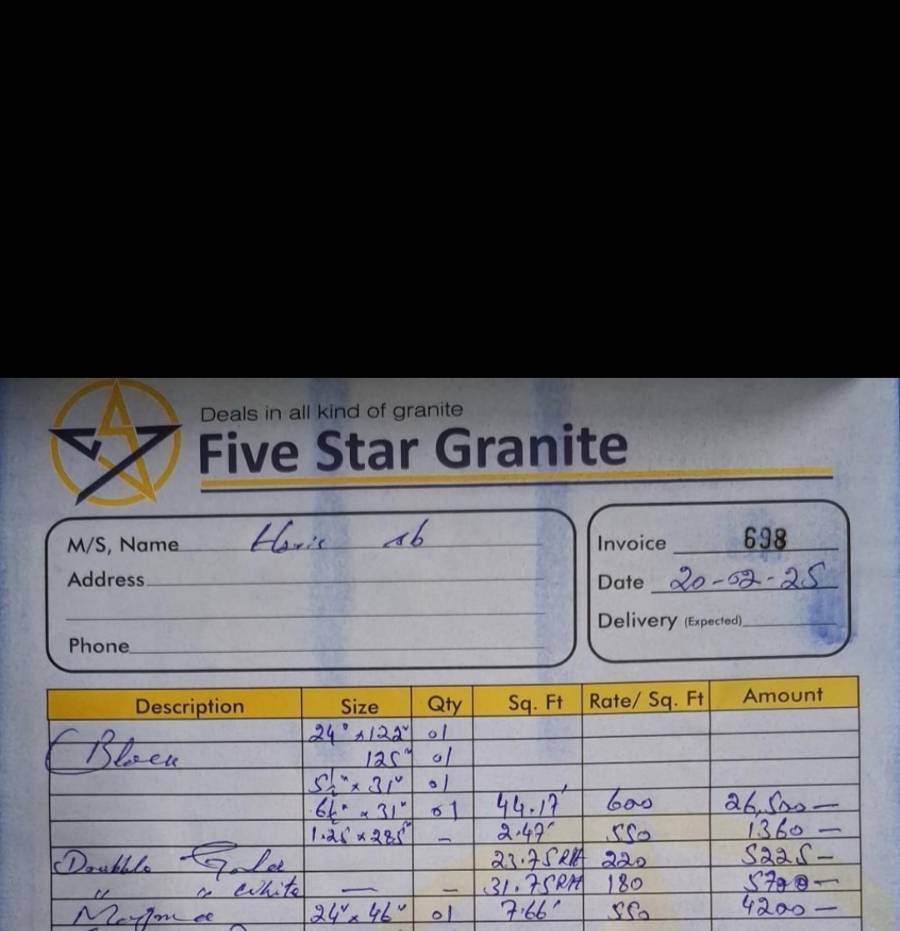 Deals in all kind of granite
Five Star Granite
M/S, Name
Address
Phone
Invoice 698
Date 20-02-25
Delivery (Expected)
Description Size Qty Sq. Ft Rate/ Sq. Ft Amount
24" x 122" 01
125" 01
5½" x 31" 01
6½" x 31" 01 44.17' 600 26,500 —
1.25 x 285" — 2.47' 550 1360 —
Doubble 23.75 Rft 220 5225 —
" " White — — 31.75 Rft 180 —
24" x 46" 01 7.66' 550 4200 —